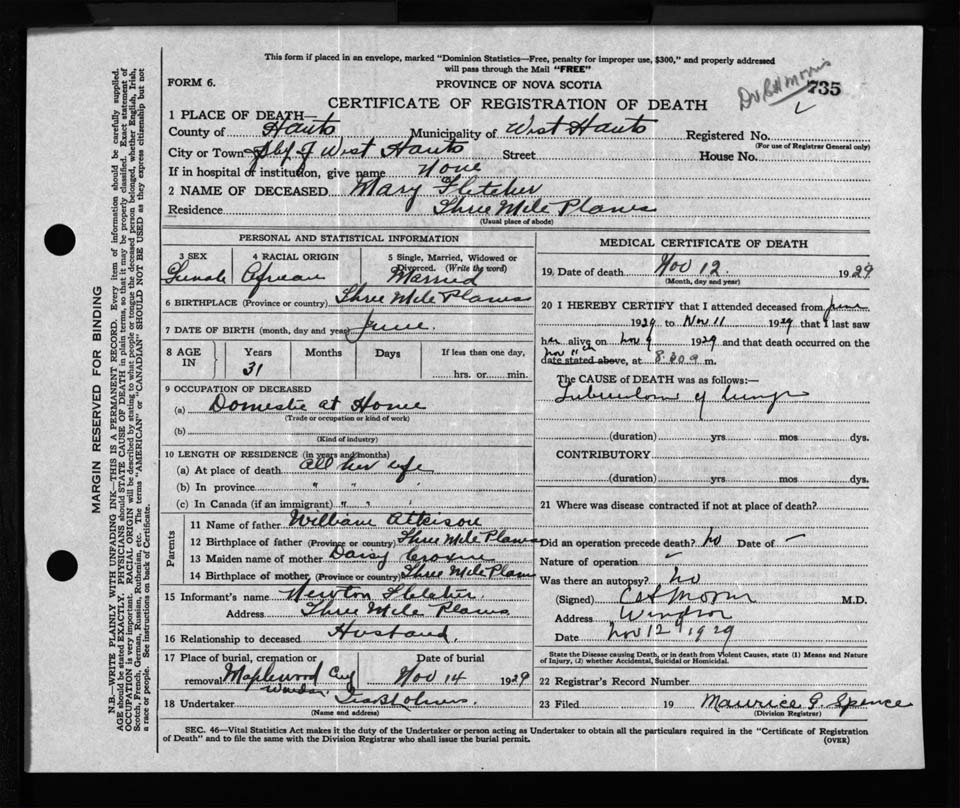 This form if placed in an envelope, marked "Dominion Statistics—Free, penalty for improper use, $300," and properly addressed
will pass through the Mail "FREE"
FORM 6.
PROVINCE OF NOVA SCOTIA
735
CERTIFICATE OF REGISTRATION OF DEATH
1 PLACE OF DEATH—
County of Hants Municipality of West Hants Registered No.
(For use of Registrar General only)
City or Town of West Hants Street House No.
If in hospital of institution, give name None
2 NAME OF DECEASED Mary Fletcher
Residence Three Mile Plains
(Usual place of abode)
PERSONAL AND STATISTICAL INFORMATION
3 SEX 4 RACIAL ORIGIN 5 Single, Married, Widowed or
Divorced. (Write the word)
Female African Married
6 BIRTHPLACE (Province or country) Three Mile Plains
7 DATE OF BIRTH (month, day and year) June.
8 AGE IN Years Months Days If less than one day,
31 hrs. or min.
9 OCCUPATION OF DECEASED
(a) Domestic at Home
(Trade or occupation or kind of work)
(b)
(Kind of industry)
10 LENGTH OF RESIDENCE (in years and months)
(a) At place of death all her life
(b) In province " " "
(c) In Canada (if an immigrant) " "
Parents
11 Name of father William Atkison
12 Birthplace of father (Province or country) Three Mile Plains
13 Maiden name of mother Daisy
14 Birthplace of mother (Province or country) Three Mile Plains
15 Informant's name Newton Fletcher
Address Three Mile Plains
16 Relationship to deceased Husband.
17 Place of burial, cremation or Date of burial
removal Maplewood Cey Nov 14 1929
Windsor
18 Undertaker
(Name and address)
MEDICAL CERTIFICATE OF DEATH
19 Date of death Nov 12. 1929
(Month, day and year)
20 I HEREBY CERTIFY that I attended deceased from June
1929 to Nov 11 1929 that I last saw
her alive on Nov 9 1929 and that death occurred on the
date stated above, at 8.30 a m.
The CAUSE OF DEATH was as follows:—
Tuberculosis of lungs
(duration) yrs mos dys.
CONTRIBUTORY
(duration) yrs. mos. dys.
21 Where was disease contracted if not at place of death?
Did an operation precede death? No Date of —
Nature of operation
Was there an autopsy? No
(Signed) Morris M.D.
Address Windsor
Date Nov 12 1929
State the Disease causing Death, or in death from Violent Causes, state (1) Means and Nature
of Injury, (2) whether Accidental, Suicidal or Homicidal.
22 Registrar's Record Number
23 Filed 19 Maurice G. Spence
(Division Registrar)
SEC. 46—Vital Statistics Act makes it the duty of the Undertaker or person acting as Undertaker to obtain all the particulars required in the "Certificate of Registration
of Death" and to file the same with the Division Registrar who shall issue the burial permit.
(OVER)
MARGIN RESERVED FOR BINDING
N.B.—WRITE PLAINLY WITH UNFADING INK—THIS IS A PERMANENT RECORD. Every item of information should be carefully supplied.
AGE should be stated EXACTLY. PHYSICIANS should STATE CAUSE OF DEATH in plain terms, so that it may be properly classified. Exact statement of
OCCUPATION is very important. RACIAL ORIGIN will be described by stating to what people or tongue the deceased person belonged, whether English, Irish,
Scotch, French, German, Russian, Ruthenian, etc. The terms "AMERICAN" or "CANADIAN" SHOULD NOT BE USED as they express citizenship but not
a race or people. See instructions on back of Certificate.